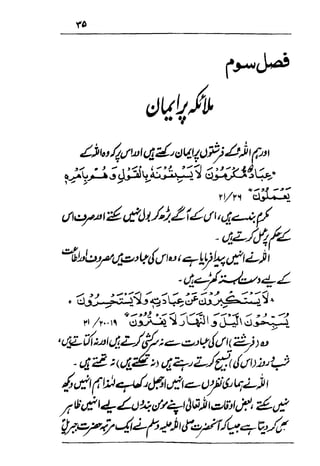 ۳۵
فصل سوم
ملائکہ پر ایمان
اور ہم اللہ کے فرشتوں پر ایمان رکھتے ہیں اور اس پر کہ وہ اللہ کے
"عِبَادٌ مُّكْرَمُوْنَ لَا يَسْبِقُوْنَهٗ بِالْقَوْلِ وَهُمْ بِاَمْرِهٖ
يَعْمَلُوْنَ" ۲۱/۲۶
مکرم بندے ہیں، اس کے آگے بڑھ کر بول نہیں سکتے اور صرف اس
کے حکم پر عمل کرتے ہیں۔
اللہ نے انہیں پیدا فرمایا ہے، وہ اس کی عبادت میں مصروف اور اطاعت
کے لیے دست بستہ کھڑے ہیں۔
"لَا يَسْتَكْبِرُوْنَ عَنْ عِبَادَتِهٖ وَلَا يَسْتَحْسِرُوْنَ ٥
يُسَبِّحُوْنَ الَّيْلَ وَالنَّهَارَ لَا يَفْتُرُوْنَ" ۱۹-۲۰/۲۱
وہ (فرشتے) اس کی عبادت سے نہ سرکشی کرتے ہیں اور نہ اکتاتے ہیں،
شب و روز (اس کی) تسبیح کرتے رہتے ہیں (نہ تھکتے ہیں) نہ تھمتے ہیں۔
اللہ نے ہماری نظروں سے انہیں اوجھل رکھا ہے لہٰذا ہم انہیں دیکھ
نہیں سکتے، بعض اوقات اللہ تعالیٰ اپنے مومن بندوں کے لیے انہیں ظاہر
بھی کر دیتا ہے جیسا کہ آنحضرت صلی اللہ علیہ وسلم نے ایک مرتبہ حضرت جبریلؑ